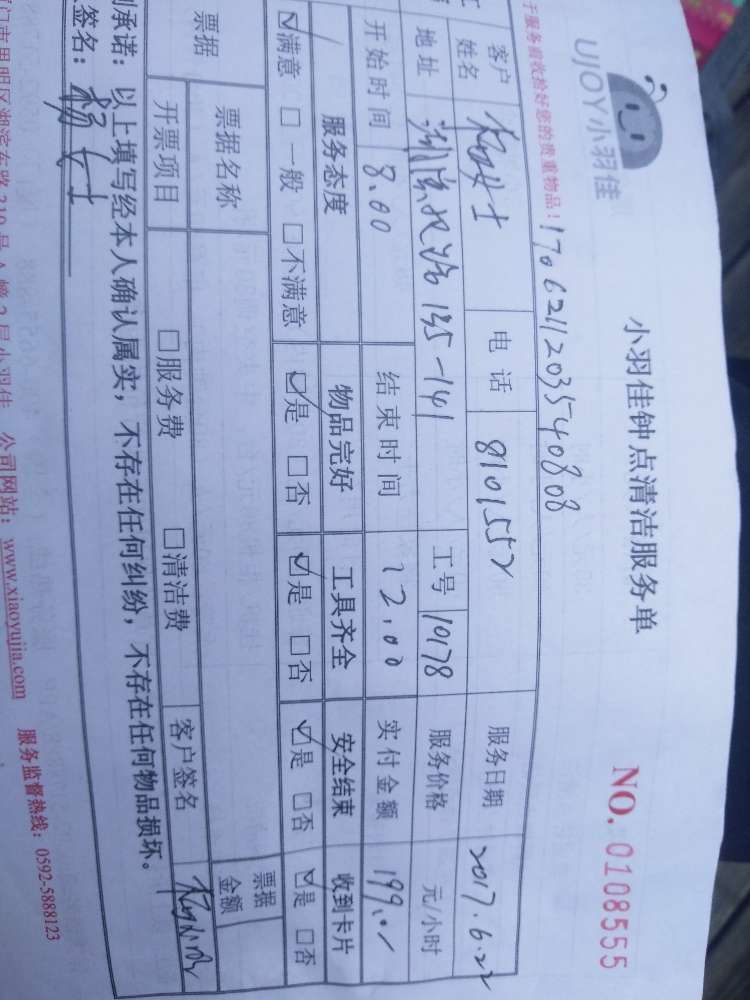 UJOY小羽佳
小羽佳钟点清洁服务单
NO. 0108555
于服务前收拾好您的贵重物品!
1706211203540808
客户姓名 女士 电话 8101552 服务日期 2017.6.22
地址 135-141 工号 10178 服务价格 元/小时
开始时间 8.00 结束时间 12.00 实付金额 199.01
服务态度 物品完好 工具齐全 安全结束 收到卡片
☑满意 □一般 □不满意 ☑是 □否 ☑是 □否 ☑是 □否 ☑是 □否
票据 票据名称 票据金额
开票项目 □服务费 □清洁费 客户签名
承诺:以上填写经本人确认属实,不存在任何纠纷,不存在任何物品损坏。
签名:杨女士
门市思明区湖滨东路319号A幢2层小羽佳 公司网站:www.xiaoyujia.com 服务监督热线:0592-5888123